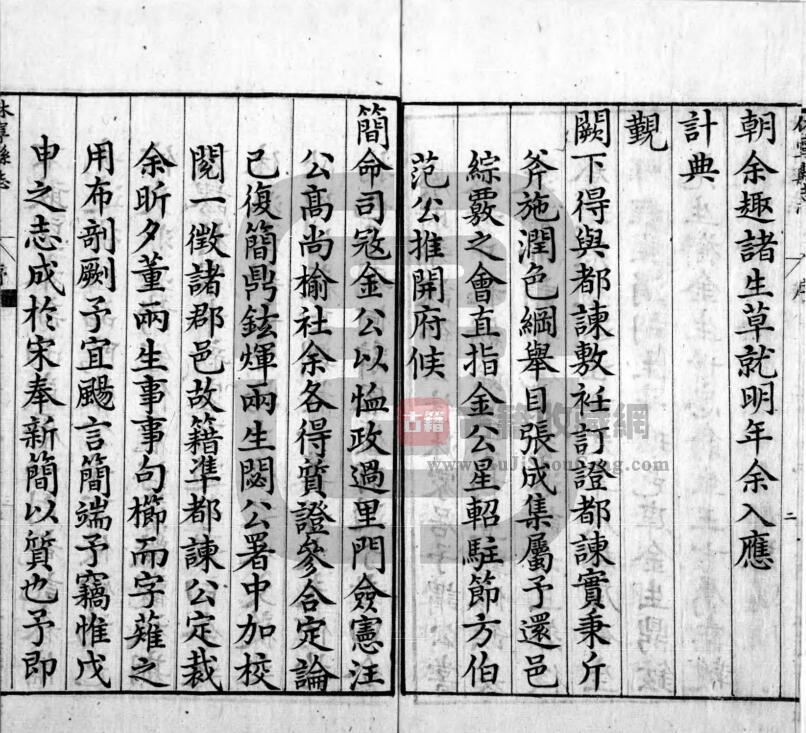 朝余趣諸生草就明年余入應
計典
覲
闕下得與都諫敷衽訂證都諫實秉斤
斧施潤色綱舉目張成集屬予還邑
綜覈之會直指金公星軺駐節方伯
范公推開府候
簡命司寇金公以恤政過里門僉憲汪
公高尚榆社余各得質證參合定論
已復簡鼎鉉煇兩生閟公署中加校
閱一徵諸郡邑故籍準都諫公定裁
余昕夕董兩生事事句櫛而字薙之
用布剞劂予宜颺言簡端予竊惟戊
申之志成於宋奉新簡以質也予即
休寧縣志
序
二
古籍
古籍收藏網